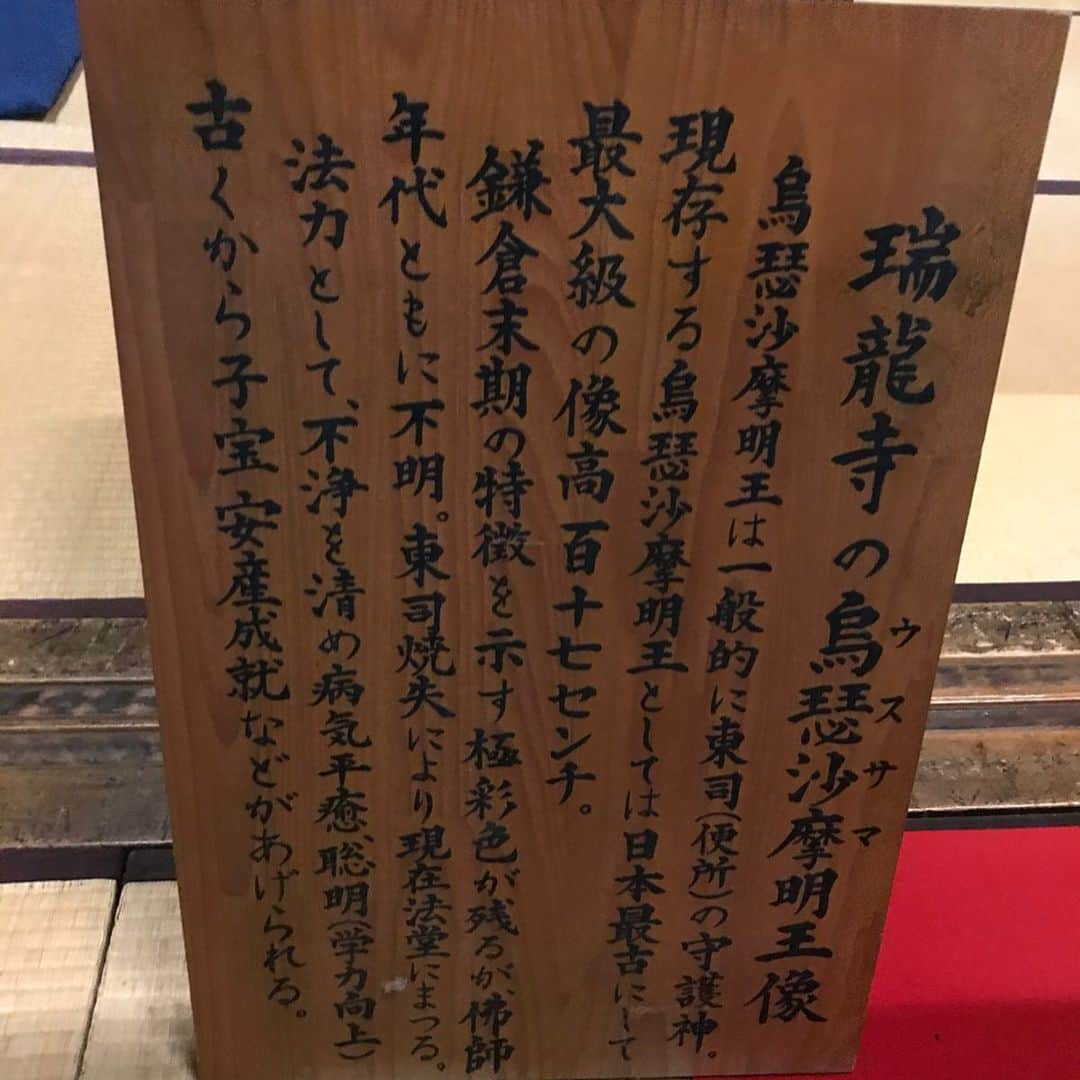 瑞龍寺の烏瑟沙摩明王像
ウスサマ
烏瑟沙摩明王は一般的に東司(便所)の守護神。
現存する烏瑟沙摩明王としては日本最古にして
最大級の像高百十七センチ。
鎌倉末期の特徴を示す極彩色が残るが、佛師
年代ともに不明。東司焼失により現在法堂にまつる。
法力として、不浄を清め病気平癒、聡明(学力向上)
古くから子宝安産成就などがあげられる。